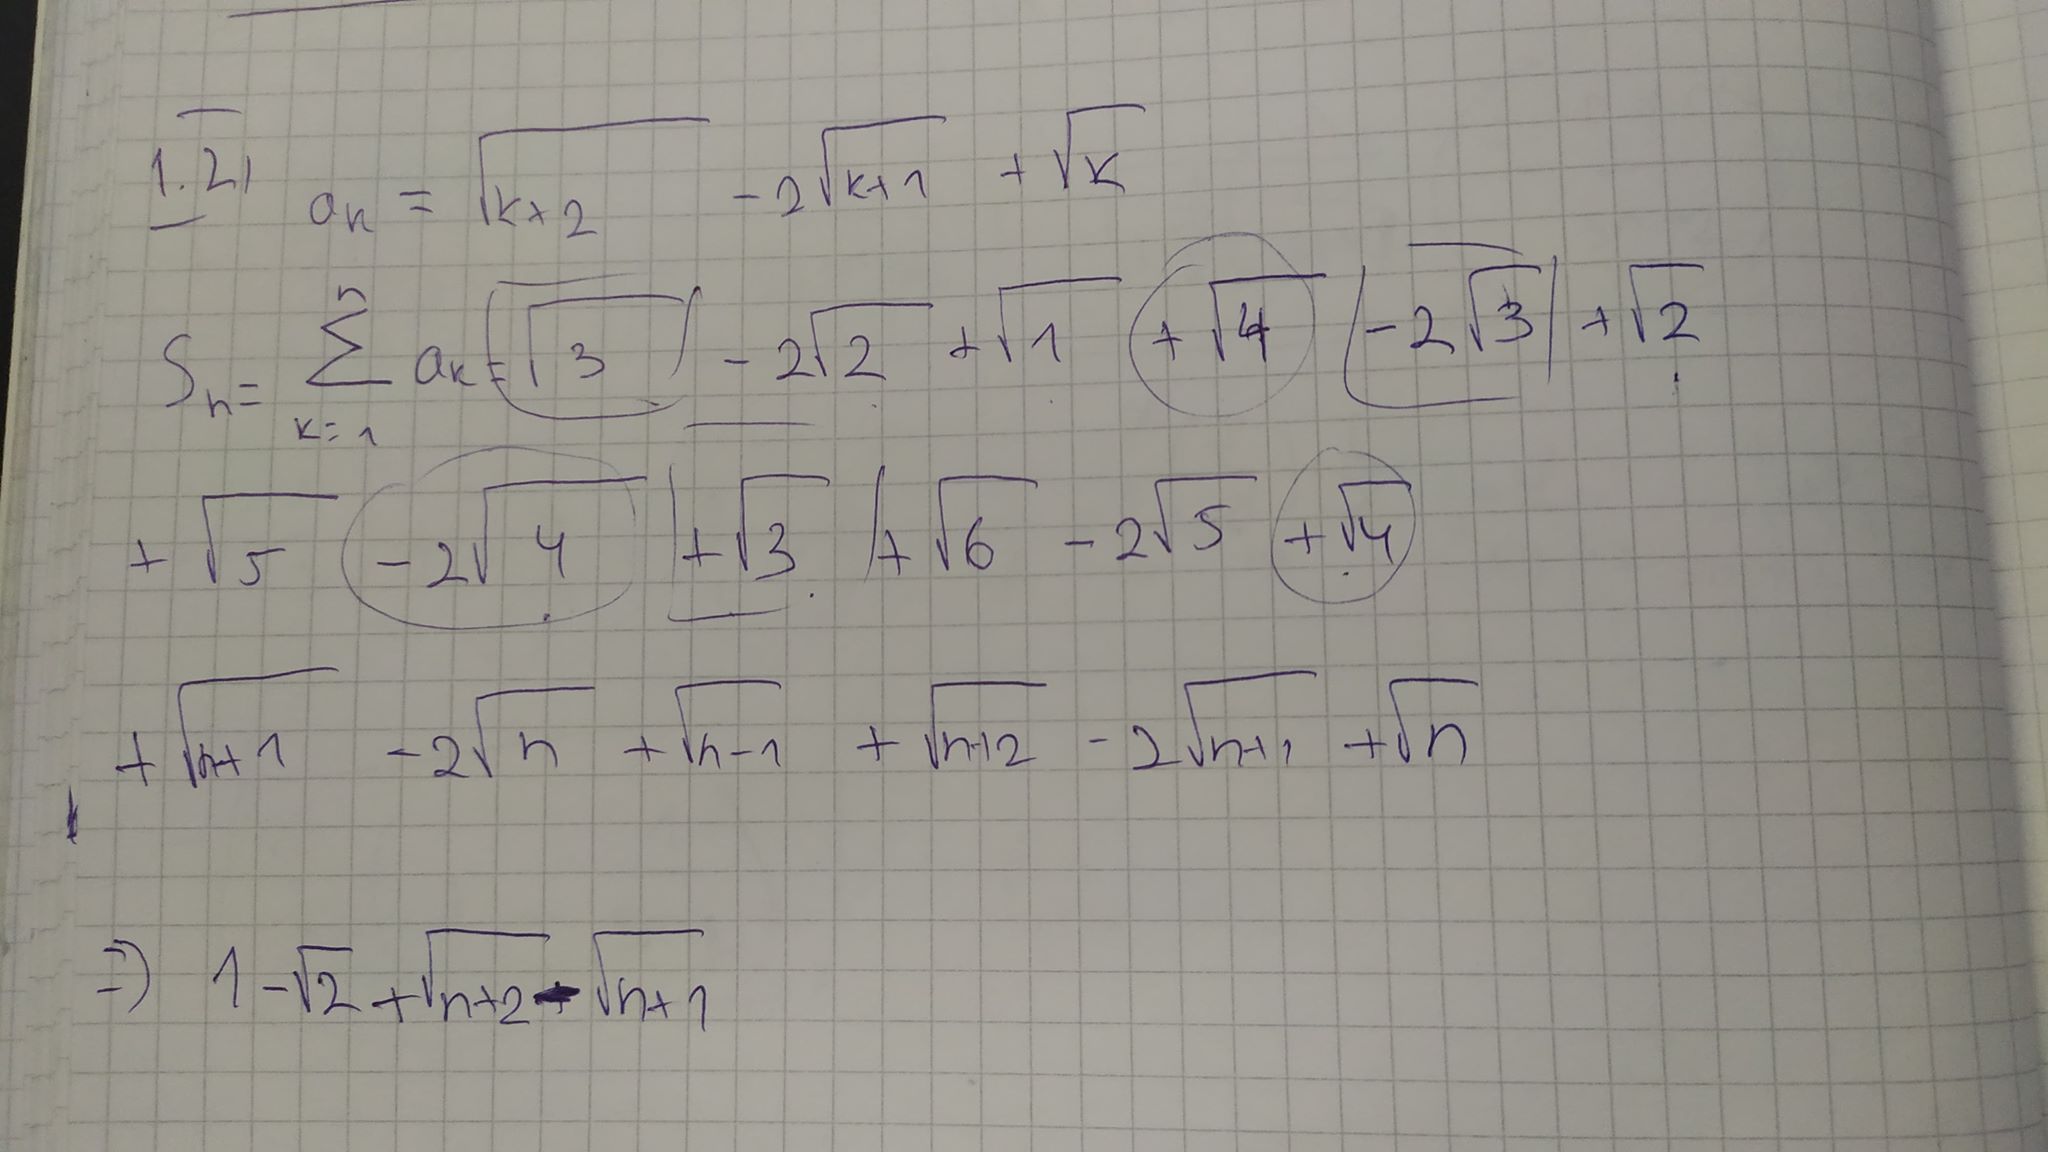 1.2) aₖ = √(k+2) - 2√(k+1) + √k
Sₙ = ∑ₖ₌₁ⁿ aₖ = √3 - 2√2 + √1 + √4 - 2√3 + √2
+ √5 - 2√4 + √3 + √6 - 2√5 + √4
+ √(n+1) - 2√n + √(n-1) + √(n+2) - 2√(n+1) + √n
⇒ 1 - √2 + √(n+2) - √(n+1)